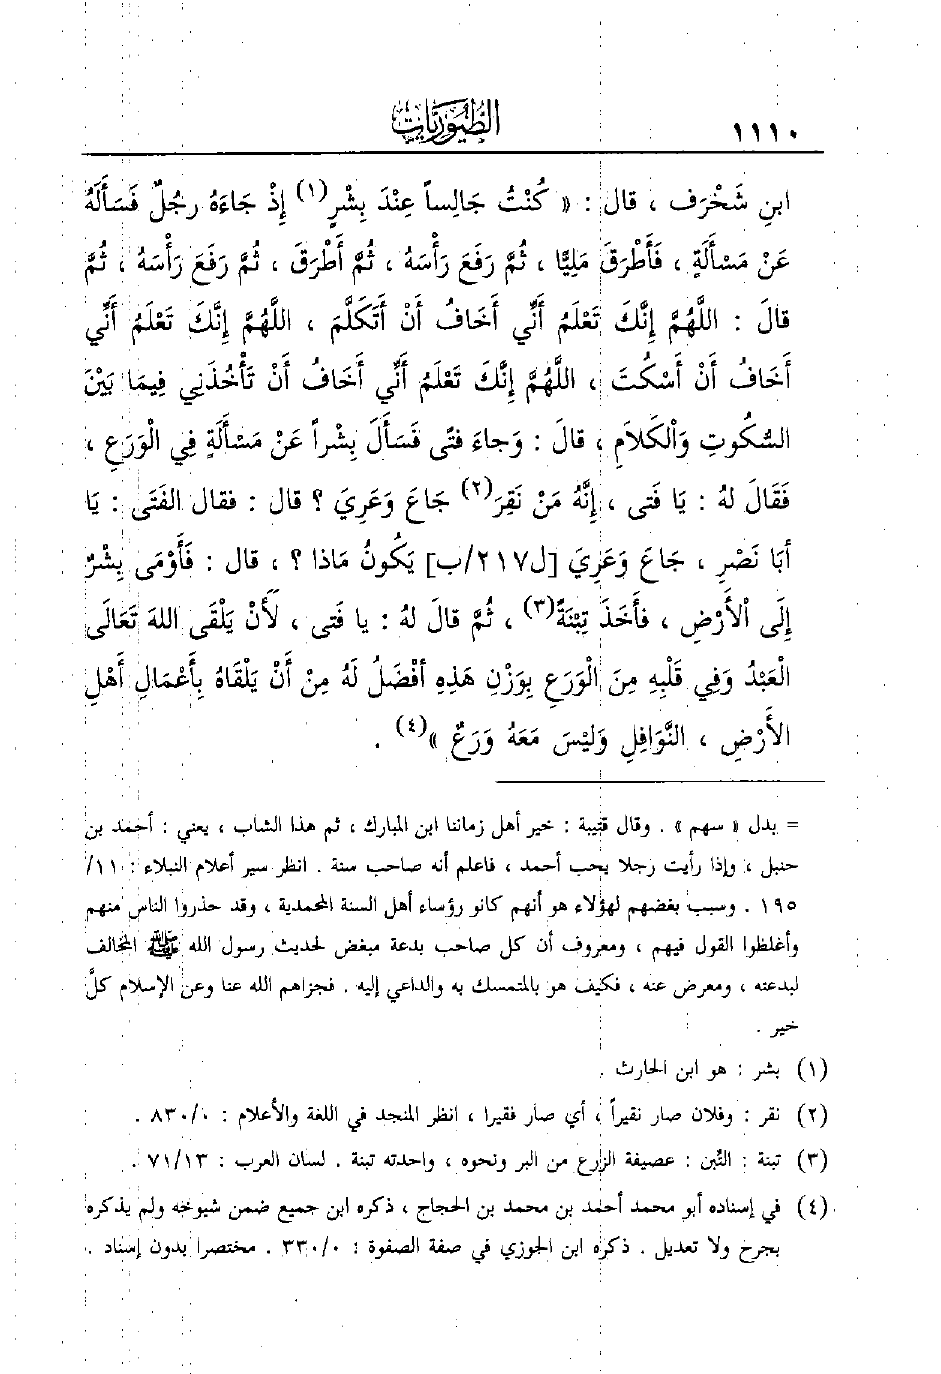 ١١١٠
الطيوريات
ابنِ شَخْرَف ، قال : « كُنْتُ جَالِساً عِنْدَ بِشْرٍ(١) إِذْ جَاءَهُ رجُلٌ فَسَأَلَهُ
عَنْ مَسْأَلَةٍ ، فَأَطْرَقَ مَلِيًّا ، ثُمَّ رَفَعَ رَأْسَهُ ، ثُمَّ أَطْرَقَ ، ثُمَّ رَفَعَ رَأْسَهُ ، ثُمَّ
قالَ : اللَّهُمَّ إِنَّكَ تَعْلَمُ أَنَّي أَخَافُ أَنْ أَتَكَلَّمَ ، اللَّهُمَّ إِنَّكَ تَعْلَمُ أَنَّي
أَخَافُ أَنْ أَسْكُتَ ، اللَّهُمَّ إِنَّكَ تَعْلَمُ أَنَّي أَخَافُ أَنْ تَأْخُذَنِي فِيمَا بَيْنَ
السُّكُوتِ وَالْكَلاَمِ ، قالَ : وَجاءَ فتًى فَسَأَلَ بِشْراً عَنْ مَسْأَلَةٍ فِي الْوَرَعِ ،
فَقَالَ لهُ : يَا فَتى ، إِنَّهُ مَنْ نَقِرَ(٢) جَاعَ وَعَرِيَ ؟ قال : فقال الفَتَى : يَا
أَبَا نَصْرٍ ، جَاعَ وَعَرِيَ [ل٢١٧/ب] يَكُونُ مَاذا ؟ ، قال : فَأَوْمَى بِشْرٌ
إِلَى الْأَرْضِ ، فأَخَذَ تِبْنَةً(٣) ، ثُمَّ قالَ لهُ : يا فَتى ، لَأَنْ يَلْقَى اللهَ تَعَالَى
الْعَبْدُ وَفِي قَلْبِهِ مِنَ الْوَرَعِ بِوَزْنِ هَذِهِ أَفْضَلُ لَهُ مِنْ أَنْ يَلْقَاهُ بِأَعْمَالِ أَهْلِ
الأَرْضِ ، النَّوَافِلِ وَلَيْسَ مَعَهُ وَرَعٌ »(٤) .
= بدل « سهم » . وقال قتيبة : خير أهل زماننا ابن المبارك ، ثم هذا الشاب ، يعني : أحمد بن
حنبل ، وإذا رأيت رجلا يحب أحمد ، فاعلم أنه صاحب سنة . انظر سير أعلام النبلاء : ١١/
١٩٥ . وسبب بغضهم لهؤلاء هو أنهم كانو رؤساء أهل السنة المحمدية ، وقد حذروا الناس منهم
وأغلظوا القول فيهم ، ومعروف أن كل صاحب بدعة مبغض لحديث رسول الله ﷺ المخالف
لبدعته ، ومعرض عنه ، فكيف هو بالمتمسك به والداعي إليه . فجزاهم الله عنا وعن الإسلام كلَّ
خير .
(١) بشر : هو ابن الحارث .
(٢) نقر : وفلان صار نقيراً ، أي صار فقيرا ، انظر المنجد في اللغة والأعلام : ٨٣٠/٠ .
(٣) تبنة : التِّبن : عصيفة الزرع من البر ونحوه ، واحدته تبنة . لسان العرب : ٧١/١٣ .
(٤) في إسناده أبو محمد أحمد بن محمد بن الحجاج ، ذكره ابن جميع ضمن شيوخه ولم يذكره
بجرح ولا تعديل . ذكره ابن الجوزي في صفة الصفوة : ٣٣٠/٠ . مختصرا بدون إسناد .